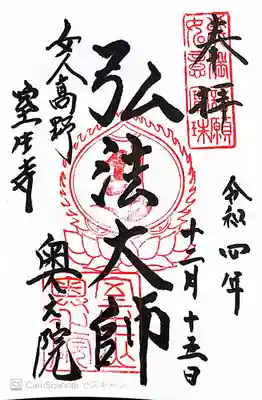 奉拝
令和四年
十二月十五日
弘法大師
奥之院
女人高野
室生寺
CS CamScanner でスキャン